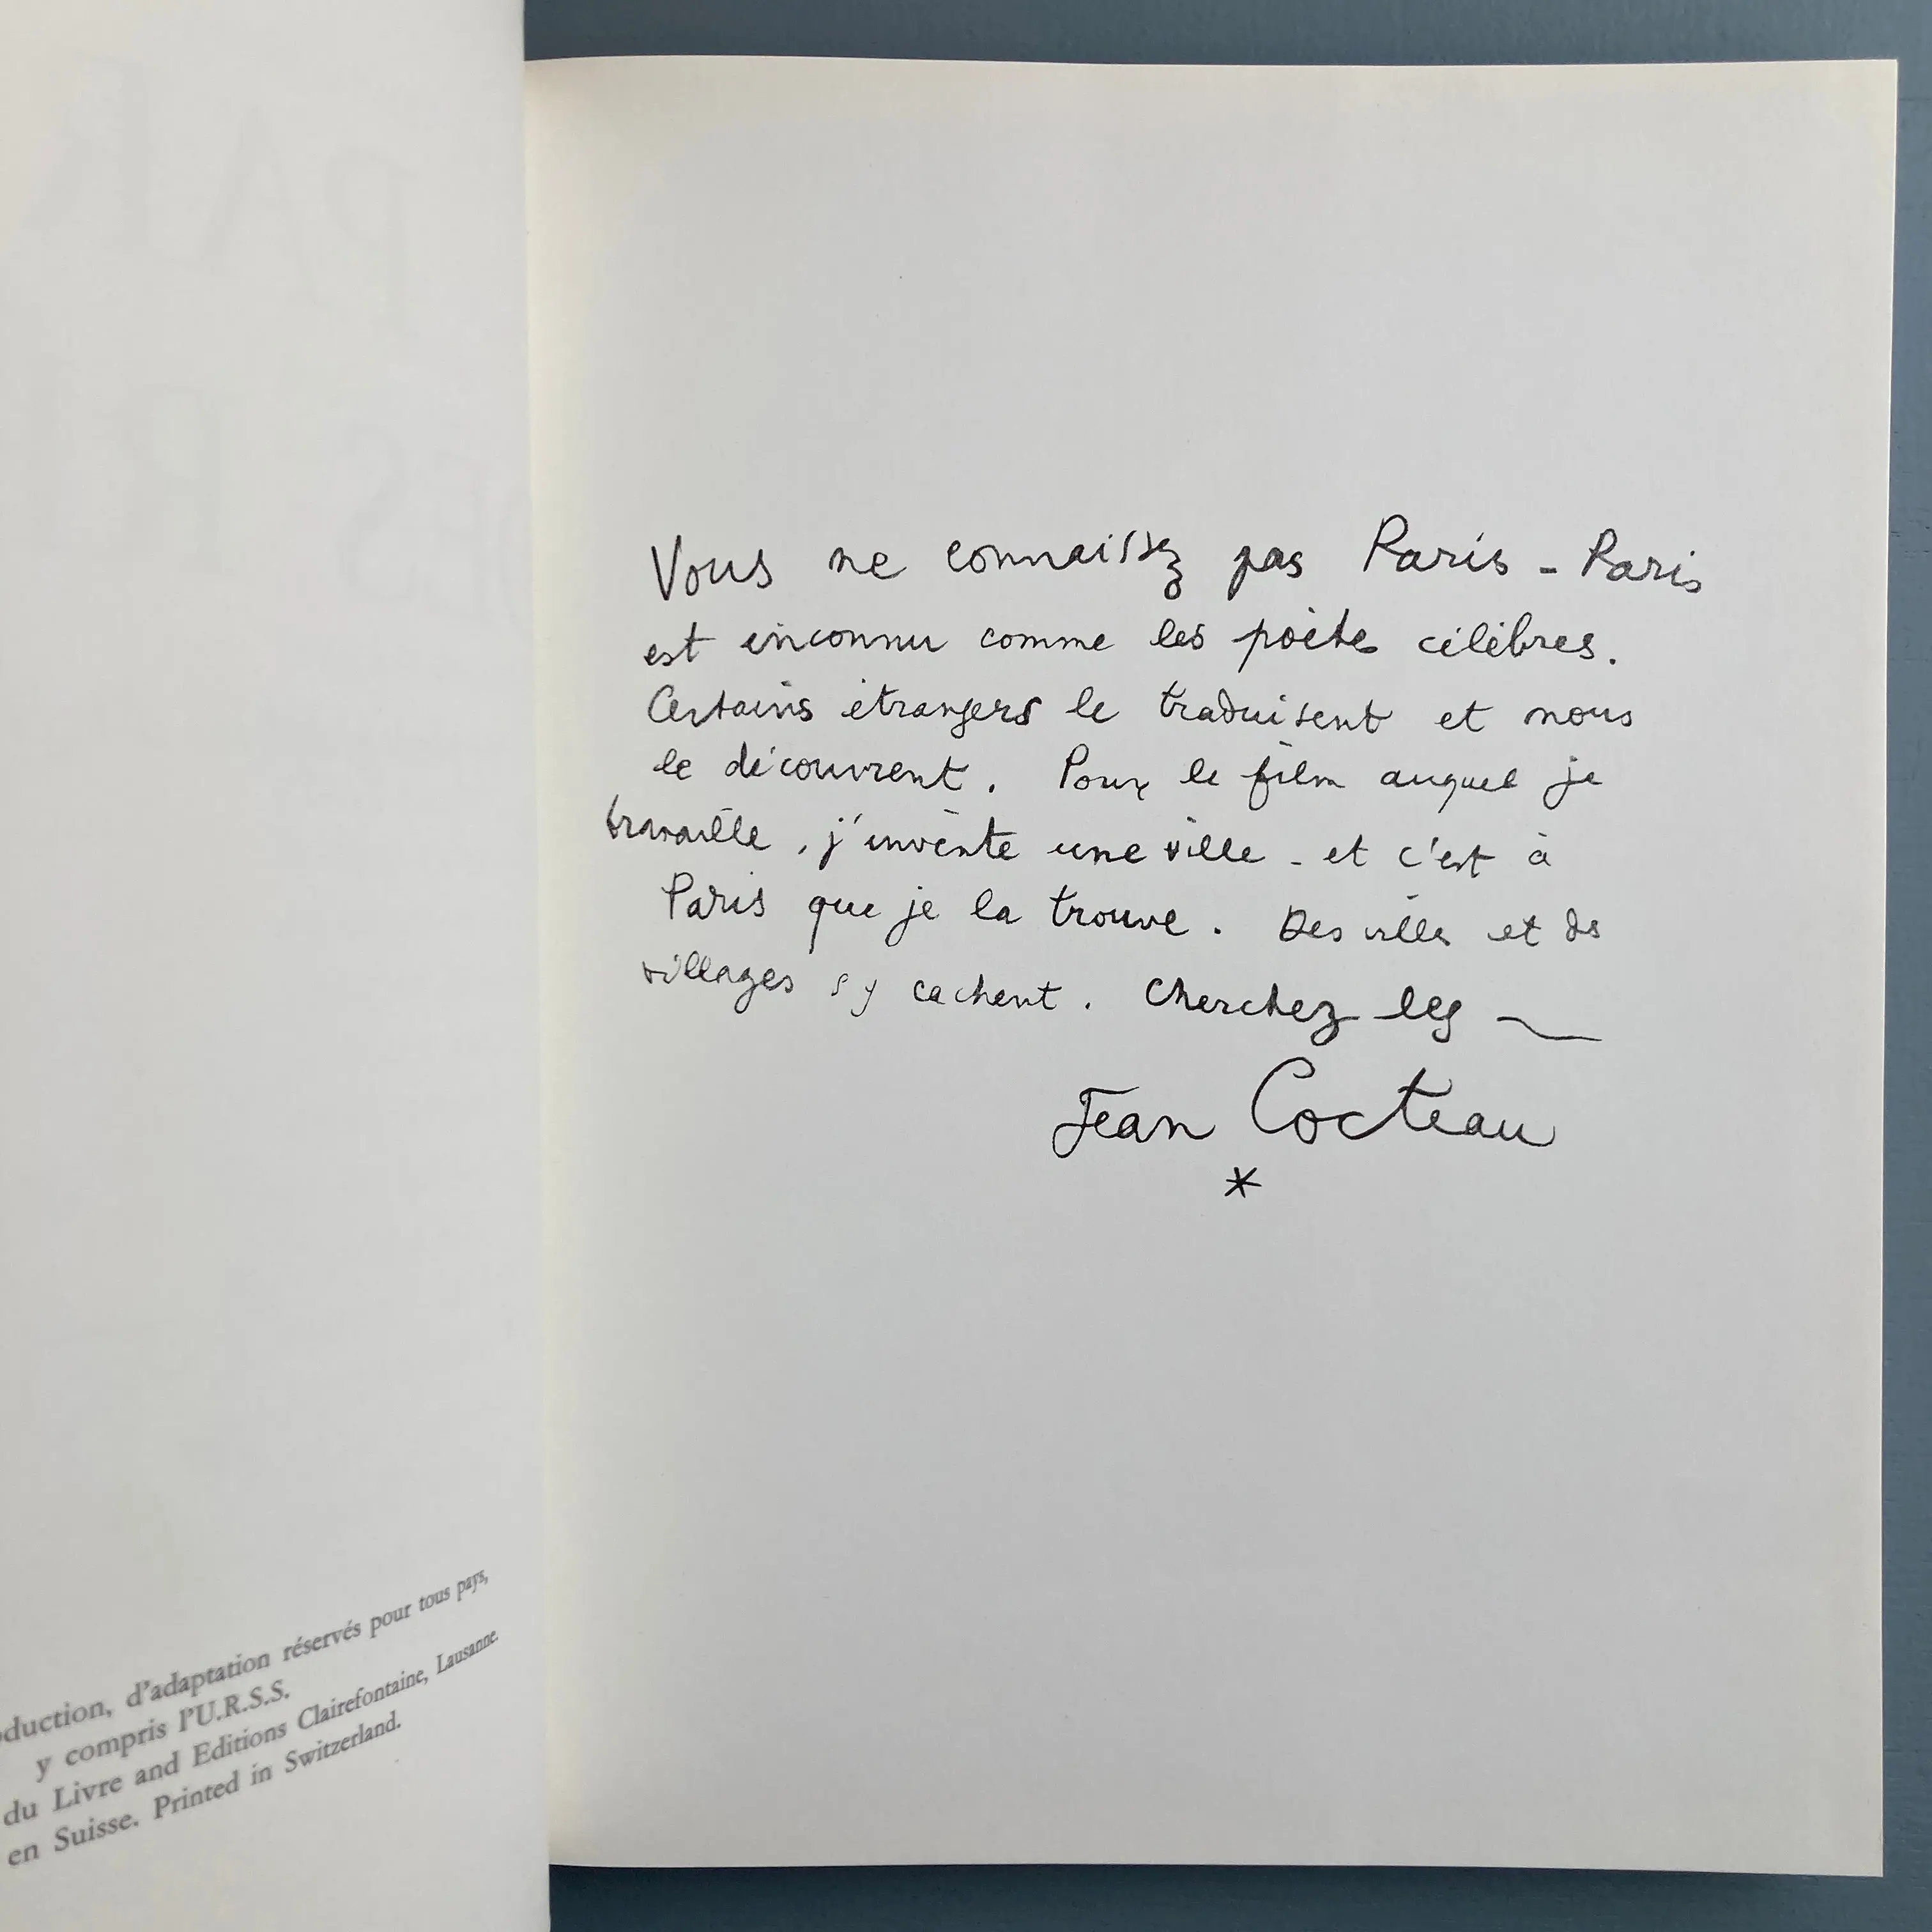 oduction, d'adaptation réservés pour tous pays,
y compris l'U.R.S.S.
du Livre and Editions Clairefontaine, Lausanne.
en Suisse. Printed in Switzerland.
Vous ne connaissez pas Paris - Paris
est inconnu comme les poètes célèbres.
Certains étrangers le traduisent et nous
le découvrent. Pour le film auquel je
travaille, j'invente une ville - et c'est à
Paris que je la trouve. Des villes et des
villages s'y cachent. Cherchez les
Jean Cocteau
*